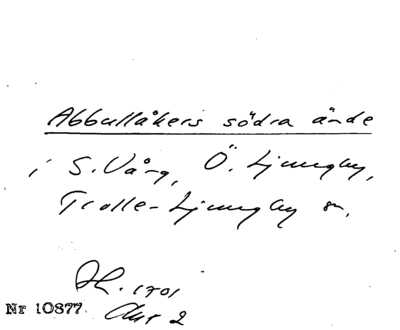 Abbullåkers södra ände
i S. Vång, Ö. Ljungby,
Trolle-Ljungby sn.
1701
Nr 10877. Akt 2